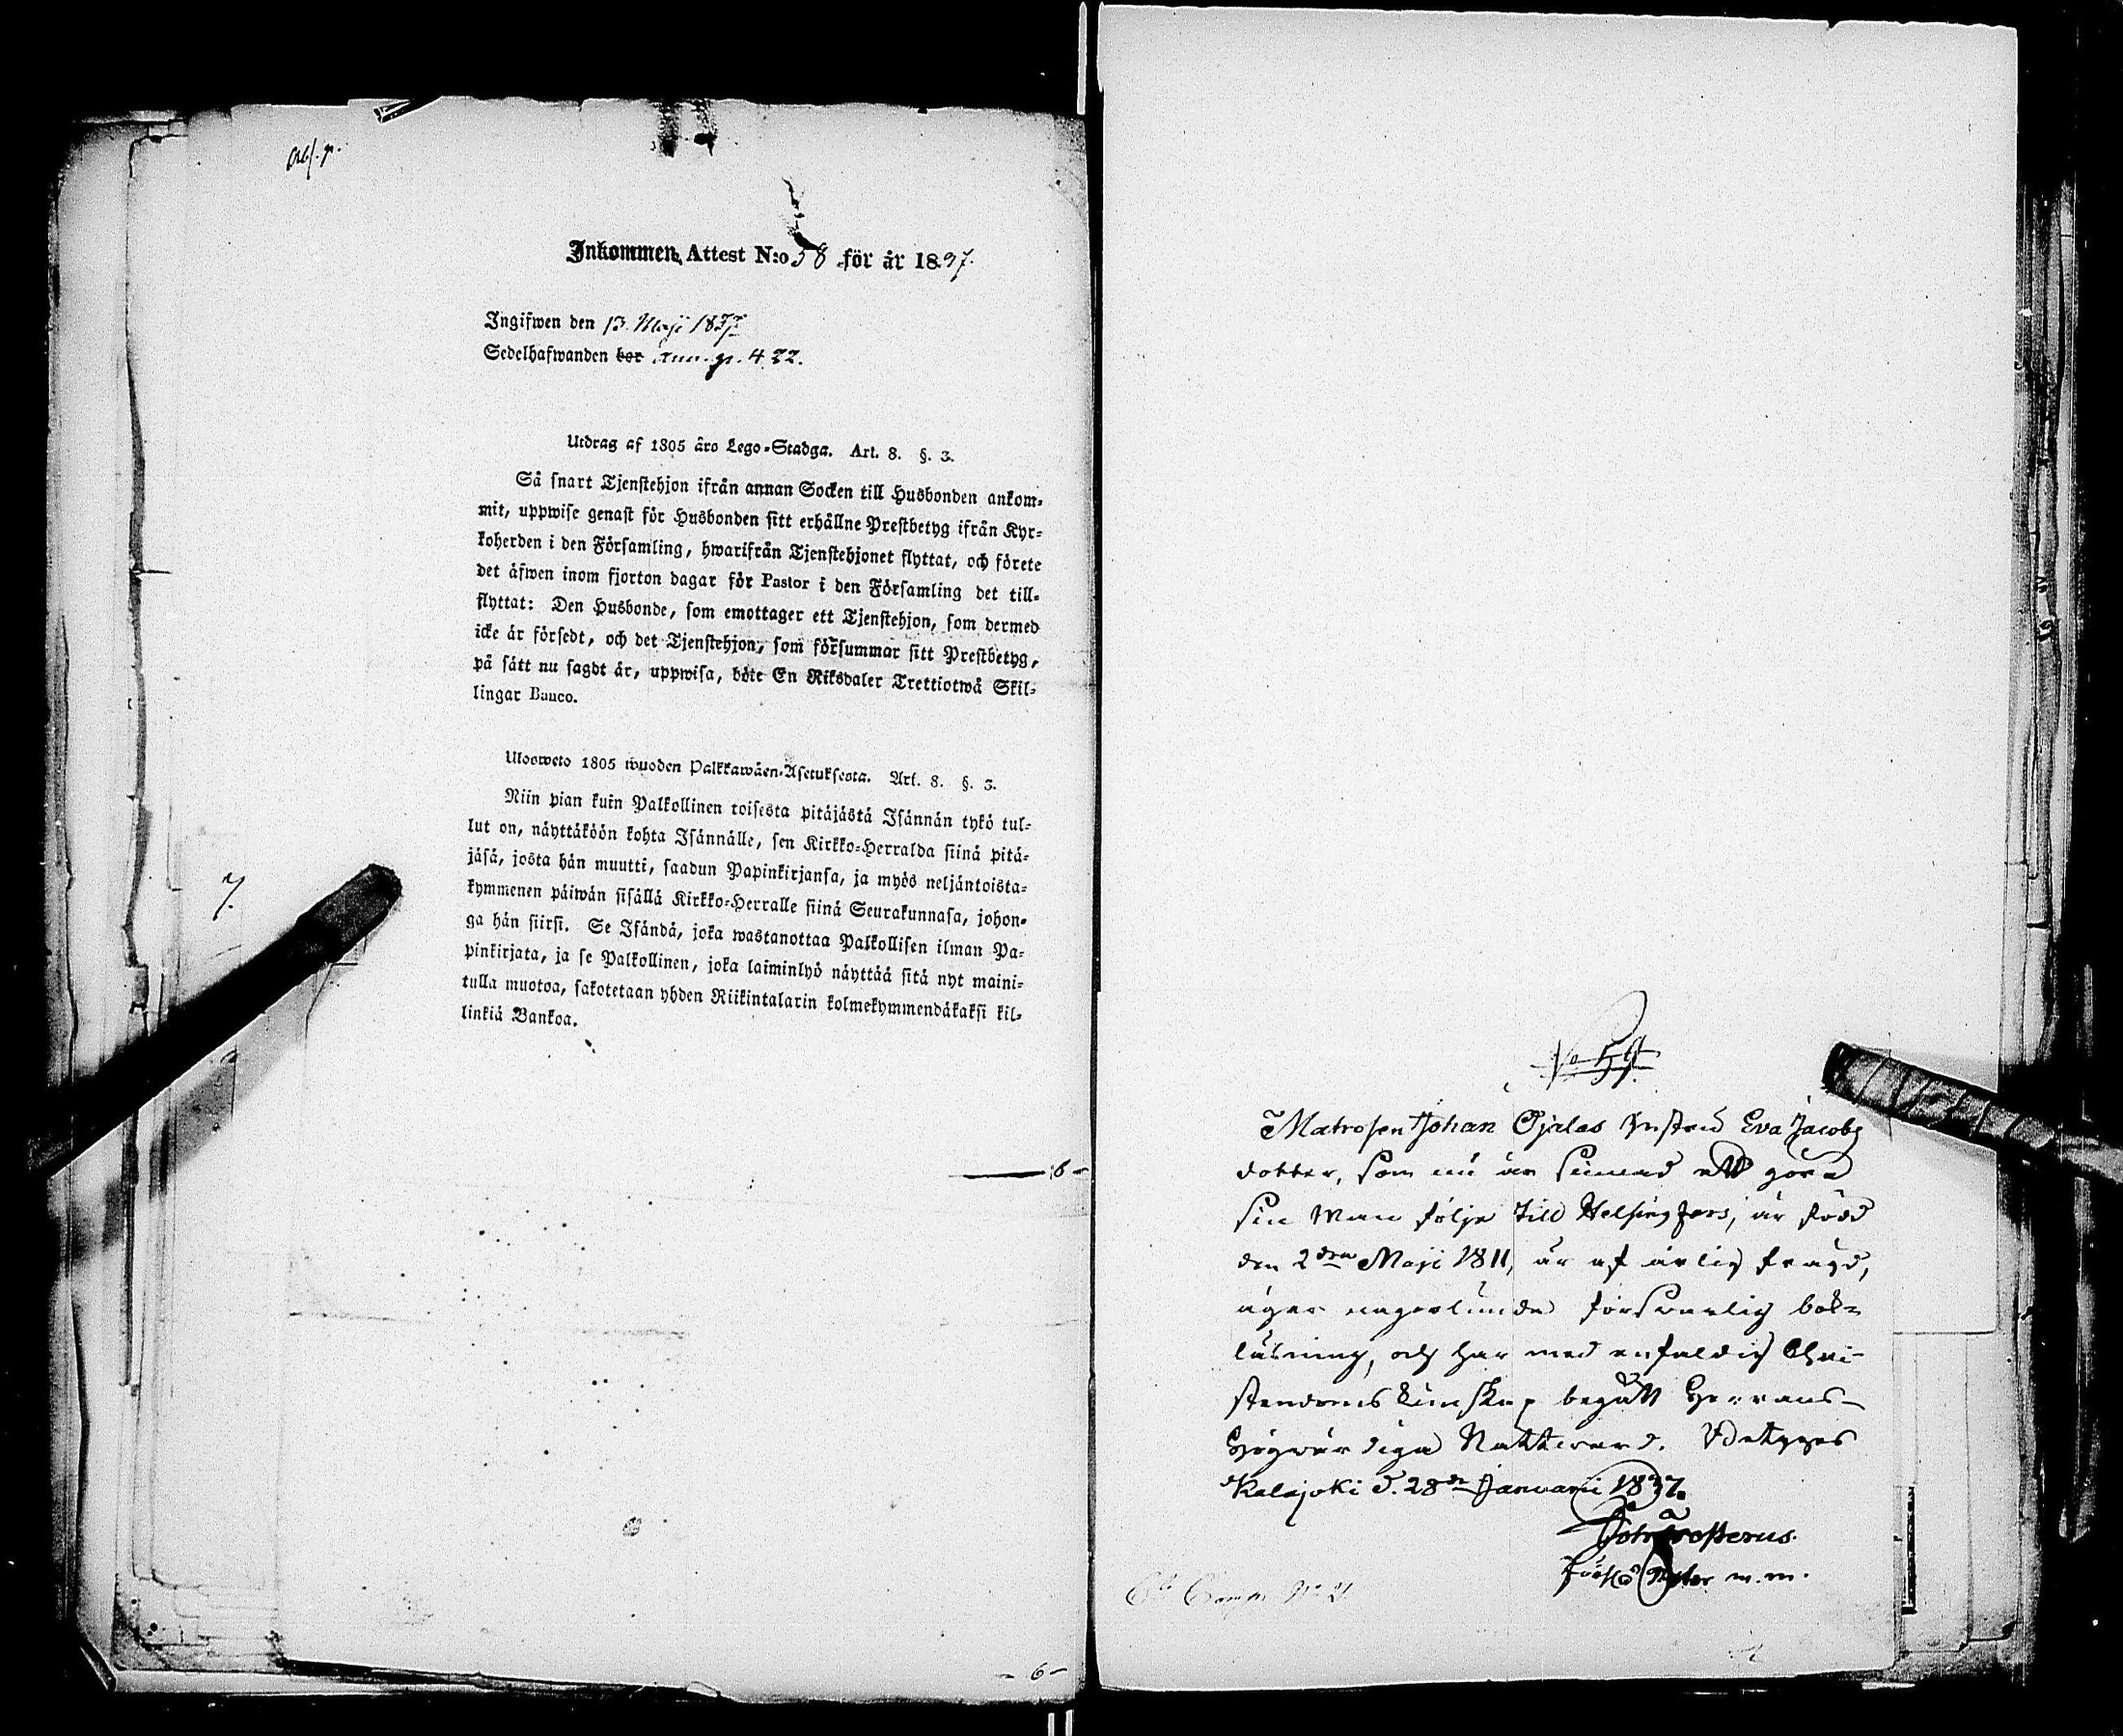 Inkommen Attest N:o 58 för år 1837.
Ingifwen den 13 Maji 1837
Sedelhafwanden bor p. 422.
Utdrag af 1805 åro Lego-Stadga. Art. 8. §. 3.
Så snart Tjenstehjon ifrån annan Socken till Husbonden ankom-
mit, uppwise genast för Husbonden sitt erhållne Prestbetyg ifrån Kyr-
koherden i den Församling, hwarifrån Tjenstehjonet flyttat, och förete
det äfwen inom fjorton dagar för Pastor i den Församling det till-
flyttat: Den Husbonde, som emottager ett Tjenstehjon, som dermed
icke är försedt, och det Tjenstehjon, som försummar sitt Prestbetyg,
på sätt nu sagdt är, uppwisa, böte En Riksdaler Trettiotwå Skil-
lingar Banco.
Ulosweto 1805 wuoden Palkkawäen-Asetuksesta. Art. 8. §. 3.
Niin pian kuin Palkollinen toisesta pitäjästä Isännän tykö tul-
lut on, näyttäköön kohta Isännälle, sen Kirkko-Herralda siinä pitä-
jäsä, josta hän muutti, saadun Papinkirjansa, ja myös neljäntoista-
kymmenen päiwän sisällä Kirkko-Herralle siinä Seurakunnasa, johon-
ga hän siirsi. Se Isändä, joka wastanottaa Palkollisen ilman Pa-
pinkirjata, ja se Palkollinen, joka laiminlyö näyttää sitä nyt maini-
tulla muotoa, sakotetaan yhden Riikintalarin kolmekymmendäkaksi kil-
linkiä Bankoa.
7.
6-
- 6 -
No 59.
Matrosen Johan Ojalas hustru Eva Jacobs
dotter, som nu är sinnad att göra
sin Man följe till Helsingfors, är född
den 2dra Maji 1811, är af ärlig frägd,
äger någorlunda försvarlig bok-
läsning, och har med enfaldig Chri-
stendoms kunskap begått Herrans
Högvärdiga Nattward. Betygas
Kalajoki d. 28de Januarii 1837.
Joh Frosterus
m.m.